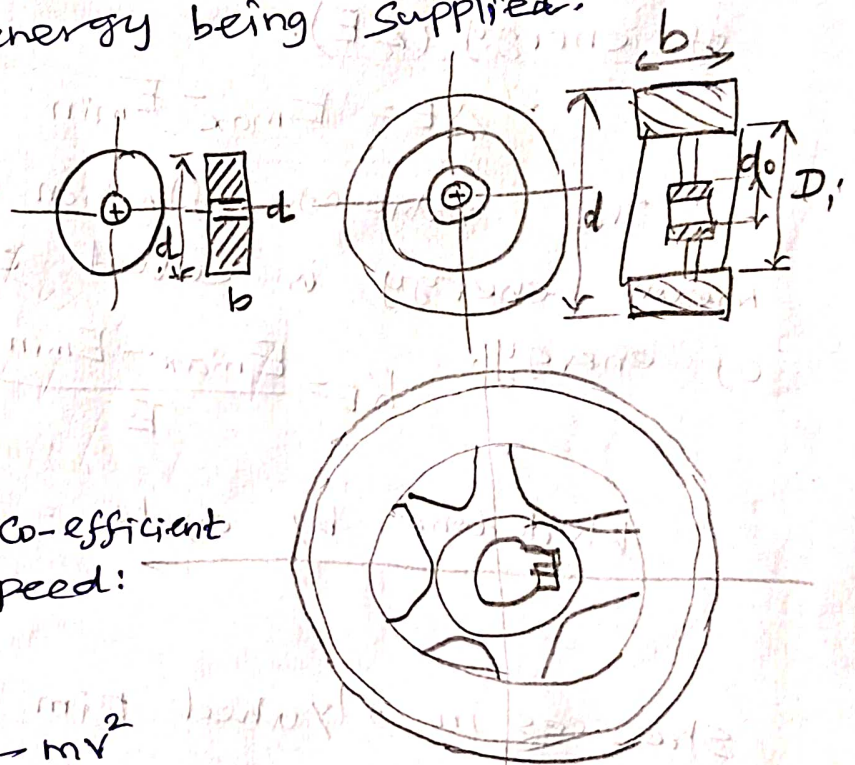 energy being Supplied.
b
d
d
b
d
d₀
Dᵢ
Co-efficient
peed:
mv²